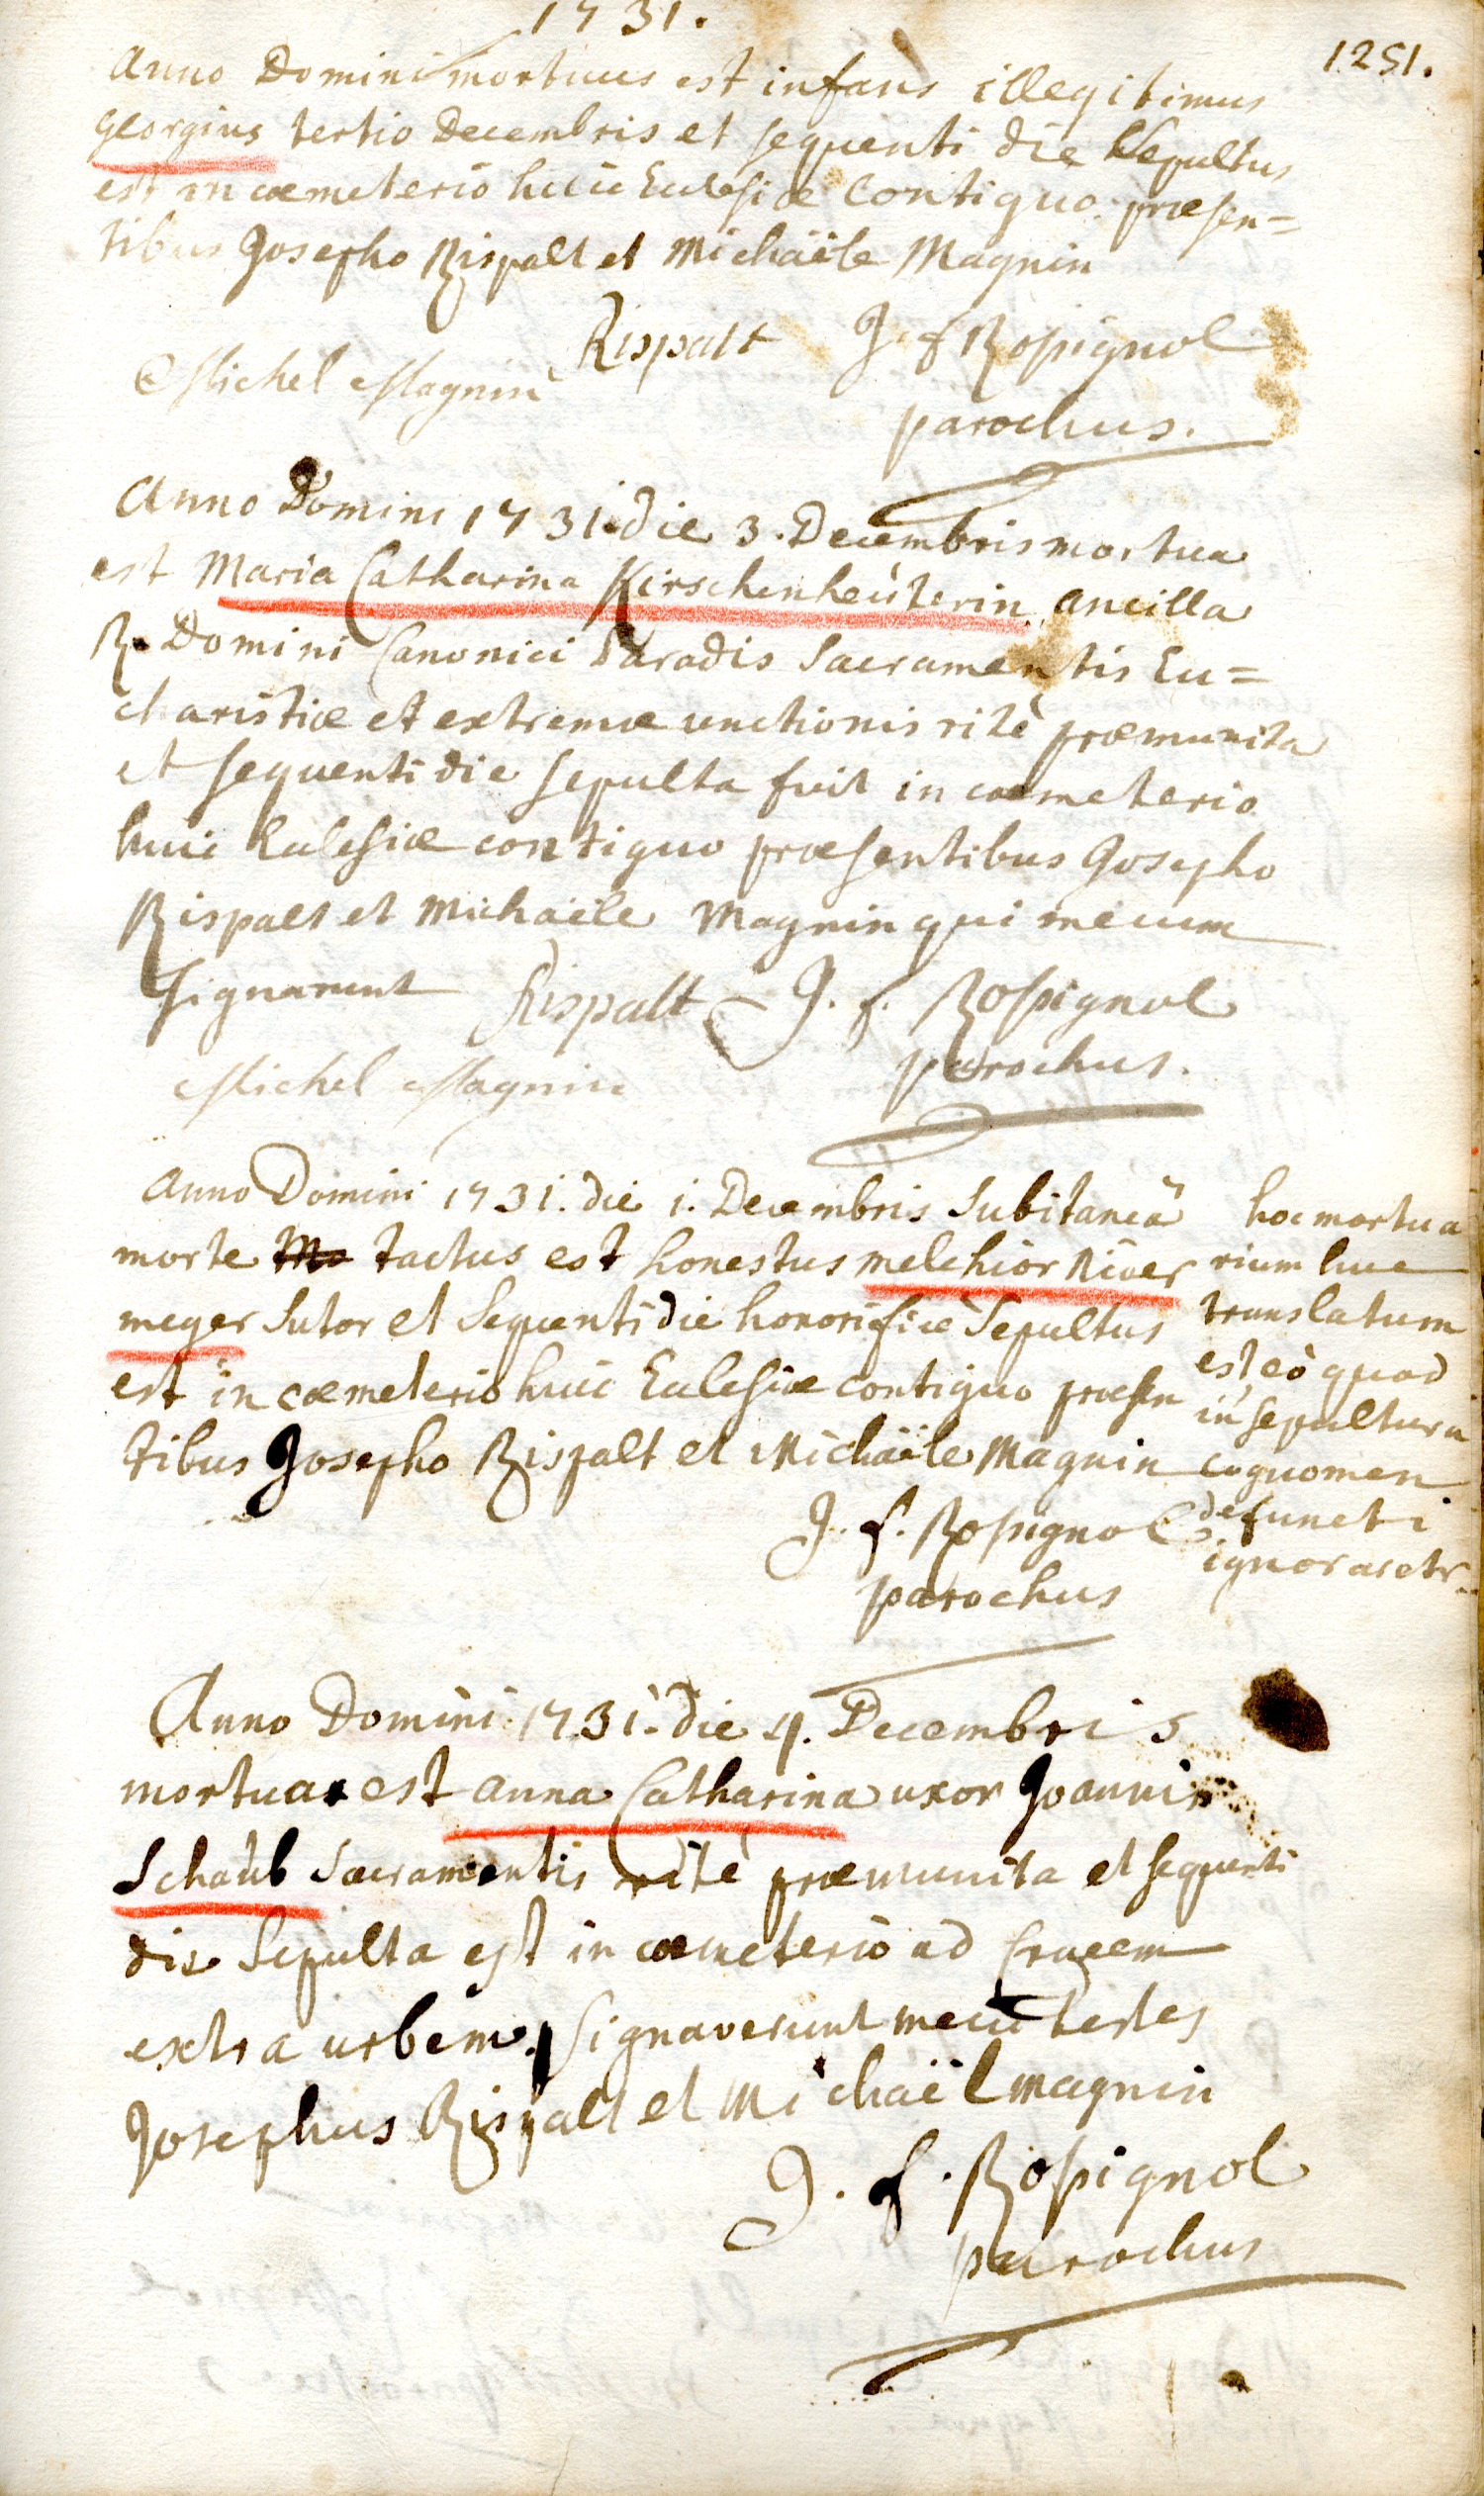 1731.
1251.
Anno Domini mortuus est infans illegitimus
Georgius tertio Decembris et sequenti die Sepultus
est in cœmeterio huic Ecclesiæ Contiguo præsen=
tibus Josepho Rispalt et Michaële Magnin
Rispalt J f Rossignol
Michel Magnin
parochus.
Anno Domini 1731. die 3. Decembris mortua
est Maria Catharina Kirschenheüterin ancilla
R. Domini Canonici Paradis Sacramentis Eu=
charistiæ et extremæ unctionis ritè præmunita
et sequenti die sepulta fuit in cœmeterio
huic Ecclesiæ contiguo præsentibus Josepho
Rispalt et Michaële Magnin qui mecum
signarunt Rispalt J. f. Rossignol
Michel Magnin parochus.
Anno Domini 1731. die 1. Decembris Subitaneâ
morte tactus est honestus melchior River
meger Sutor et Sequenti die honorificè Sepultus
est in cœmeterio huic Ecclesiæ contiguo præsen
tibus Josepho Rispalt et Michaële Magnin
J. f. Rossignol
parochus
hoc mortua
rium huc
translatum
est eò quod
in sepultura
cognomen
defuncti
ignoraretr.
Anno Domini 1731. die 4. Decembris
mortua est anna Catharina uxor Joannis
Schaüb Sacramentis ritè præmunita et sequenti
die Sepulta est in cœmeterio ad Crucem
extra urbem. Signaverunt mecū testes
Josephus Rispalt et Michaël magnin
J. f. Rossignol
parochus